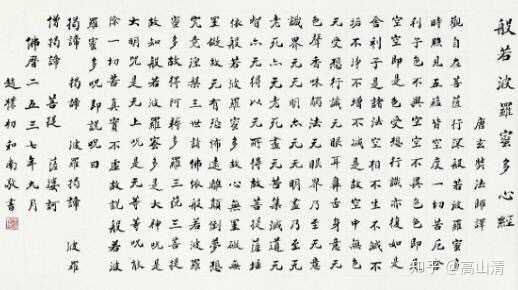 般若波羅蜜多心經
唐玄奘法師譯
觀自在菩薩行深般若波羅蜜多
時照見五蘊皆空度一切苦厄舍
利子色不異空空不異色色即是
空空即是色受想行識亦復如是
舍利子是諸法空相不生不滅不
垢不淨不增不減是故空中无色
无受想行識无眼耳鼻舌身意无
色聲香味觸法无眼界乃至无意
識界无无明亦无无明盡乃至无
老死亦无老死盡无苦集滅道无
智亦无得以无所得故菩提薩埵
依般若波羅蜜多故心無罣礙無
罣礙故无有恐怖遠離顛倒夢想
究竟涅槃三世諸佛依般若波羅
蜜多故得阿耨多羅三藐三菩提
故知般若波羅蜜多是大神咒是
大明咒是无上咒是无等等咒能
除一切苦真實不虛故說般若波
羅蜜多咒即說咒曰
揭諦 揭諦 波羅揭諦 波羅
僧揭諦 菩提 薩婆訶
佛曆二五三七年九月
趙樸初和南敬書
知乎 @高山清